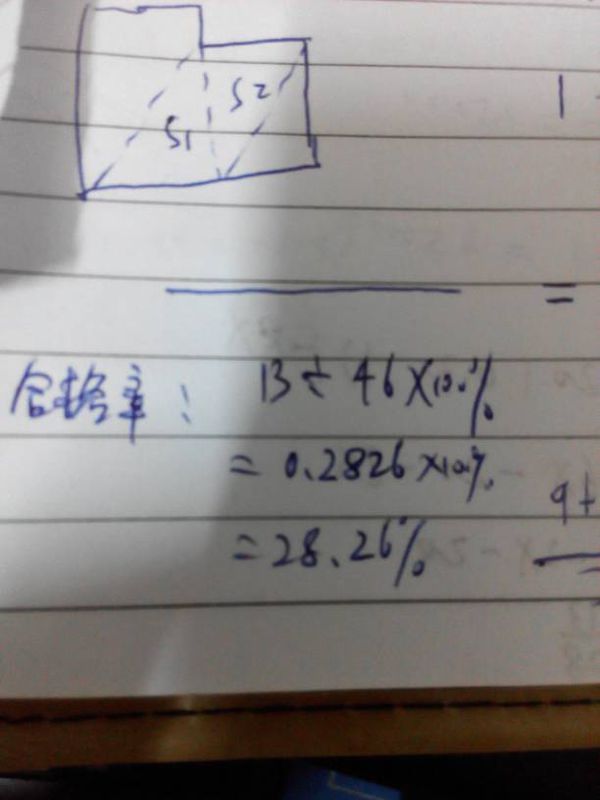 S1
S2
1
=
合格率：13÷46×100%
=0.2826×100%
=28.26%
9+